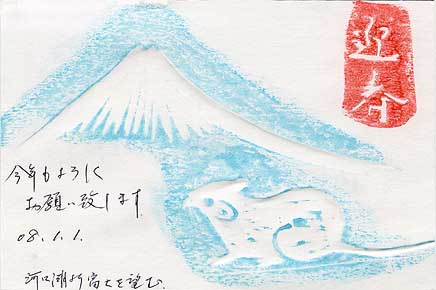 迎春
今年もよろしく
お願い致します
08.1.1.
河口湖より富士を望む